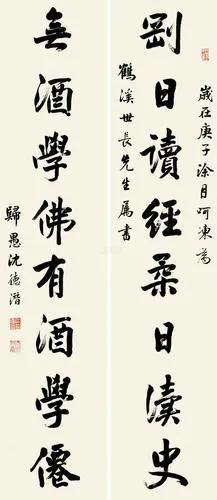 歲在庚子涂月呵凍為
鶴溪世長先生屬書
剛日讀經柔日讀史
無酒學佛有酒學僊
歸愚沈德潛